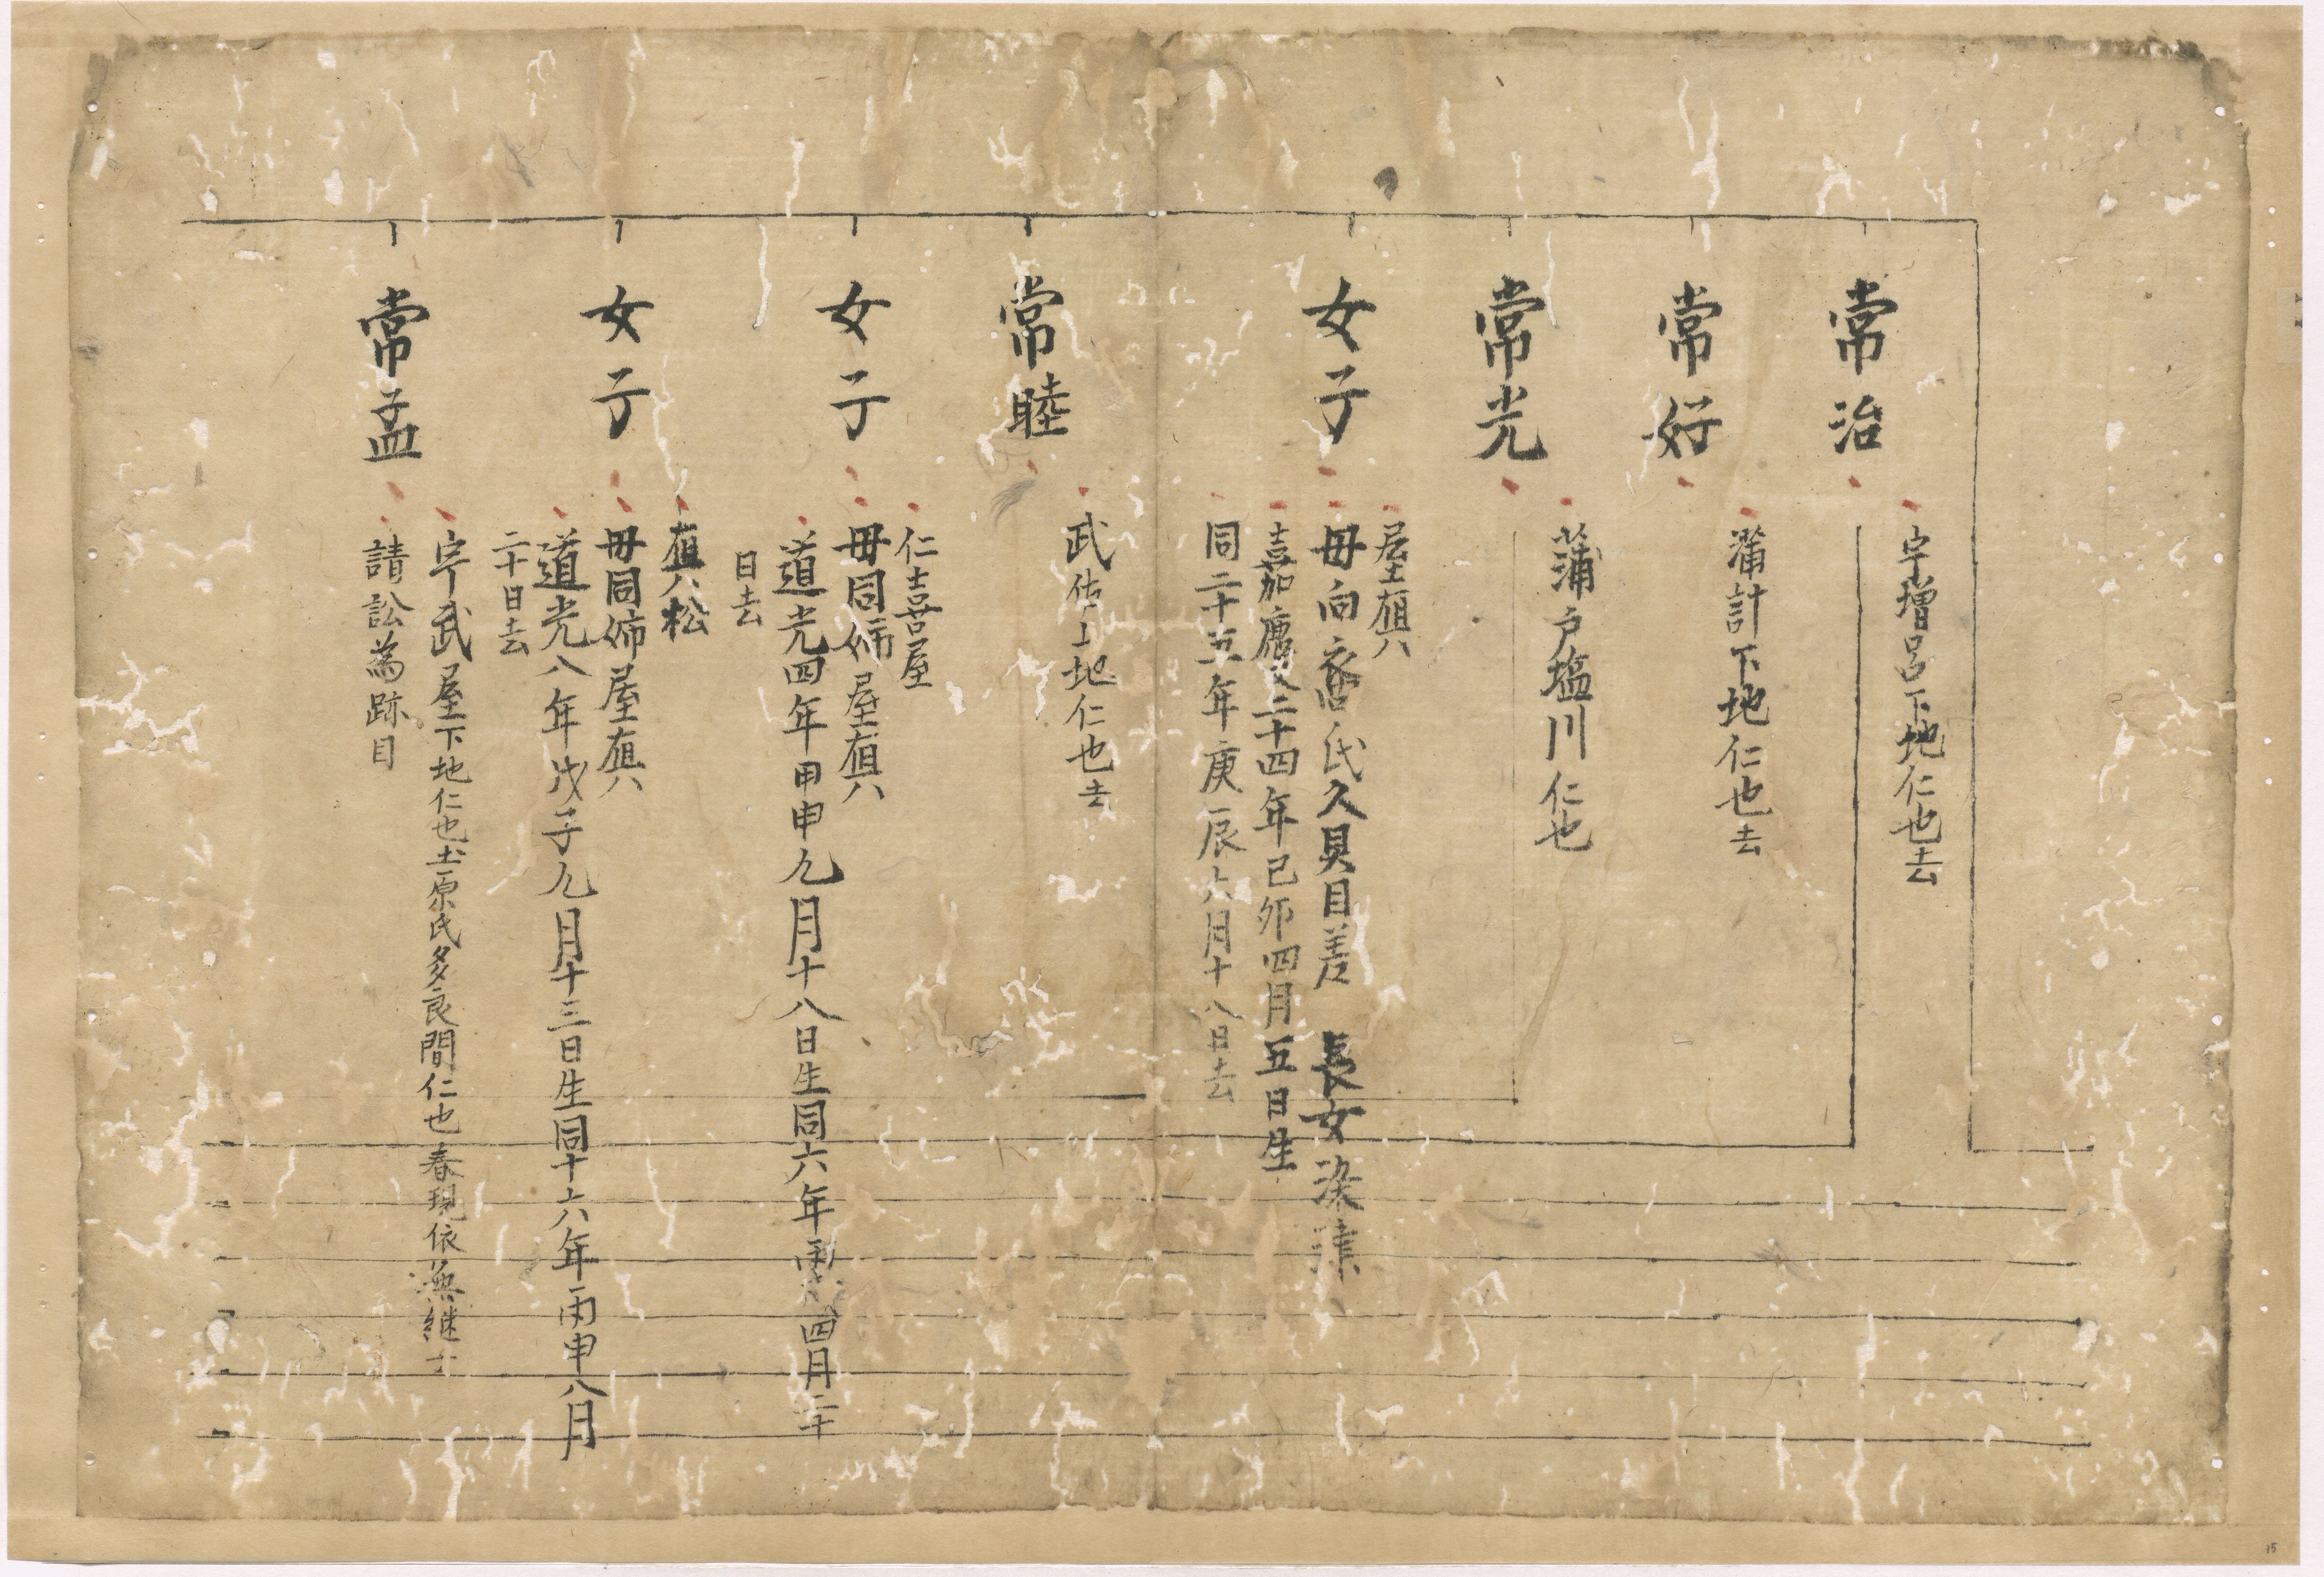 常治
宇增呂下地仁也去
常好
蒲計下地仁也去
常光
蒲戸塩川仁也
女子
屋樌
母向裔氏久貝目差 長女
嘉慶二十四年己卯四月五日生
同二十五年庚辰六月十八日去
常睦
武佐上地仁也去
女子
仁喜屋
母同姉屋樌
道光四年甲申九月十八日生同六年丙戌四月二十
日去
女子
樌松
母同姉屋樌
道光八年戊子九月十三日生同十六年丙申八月
二十日去
常孟
宇武屋下地仁也土原氏多良間仁也春現依無継
請訟為跡目
15